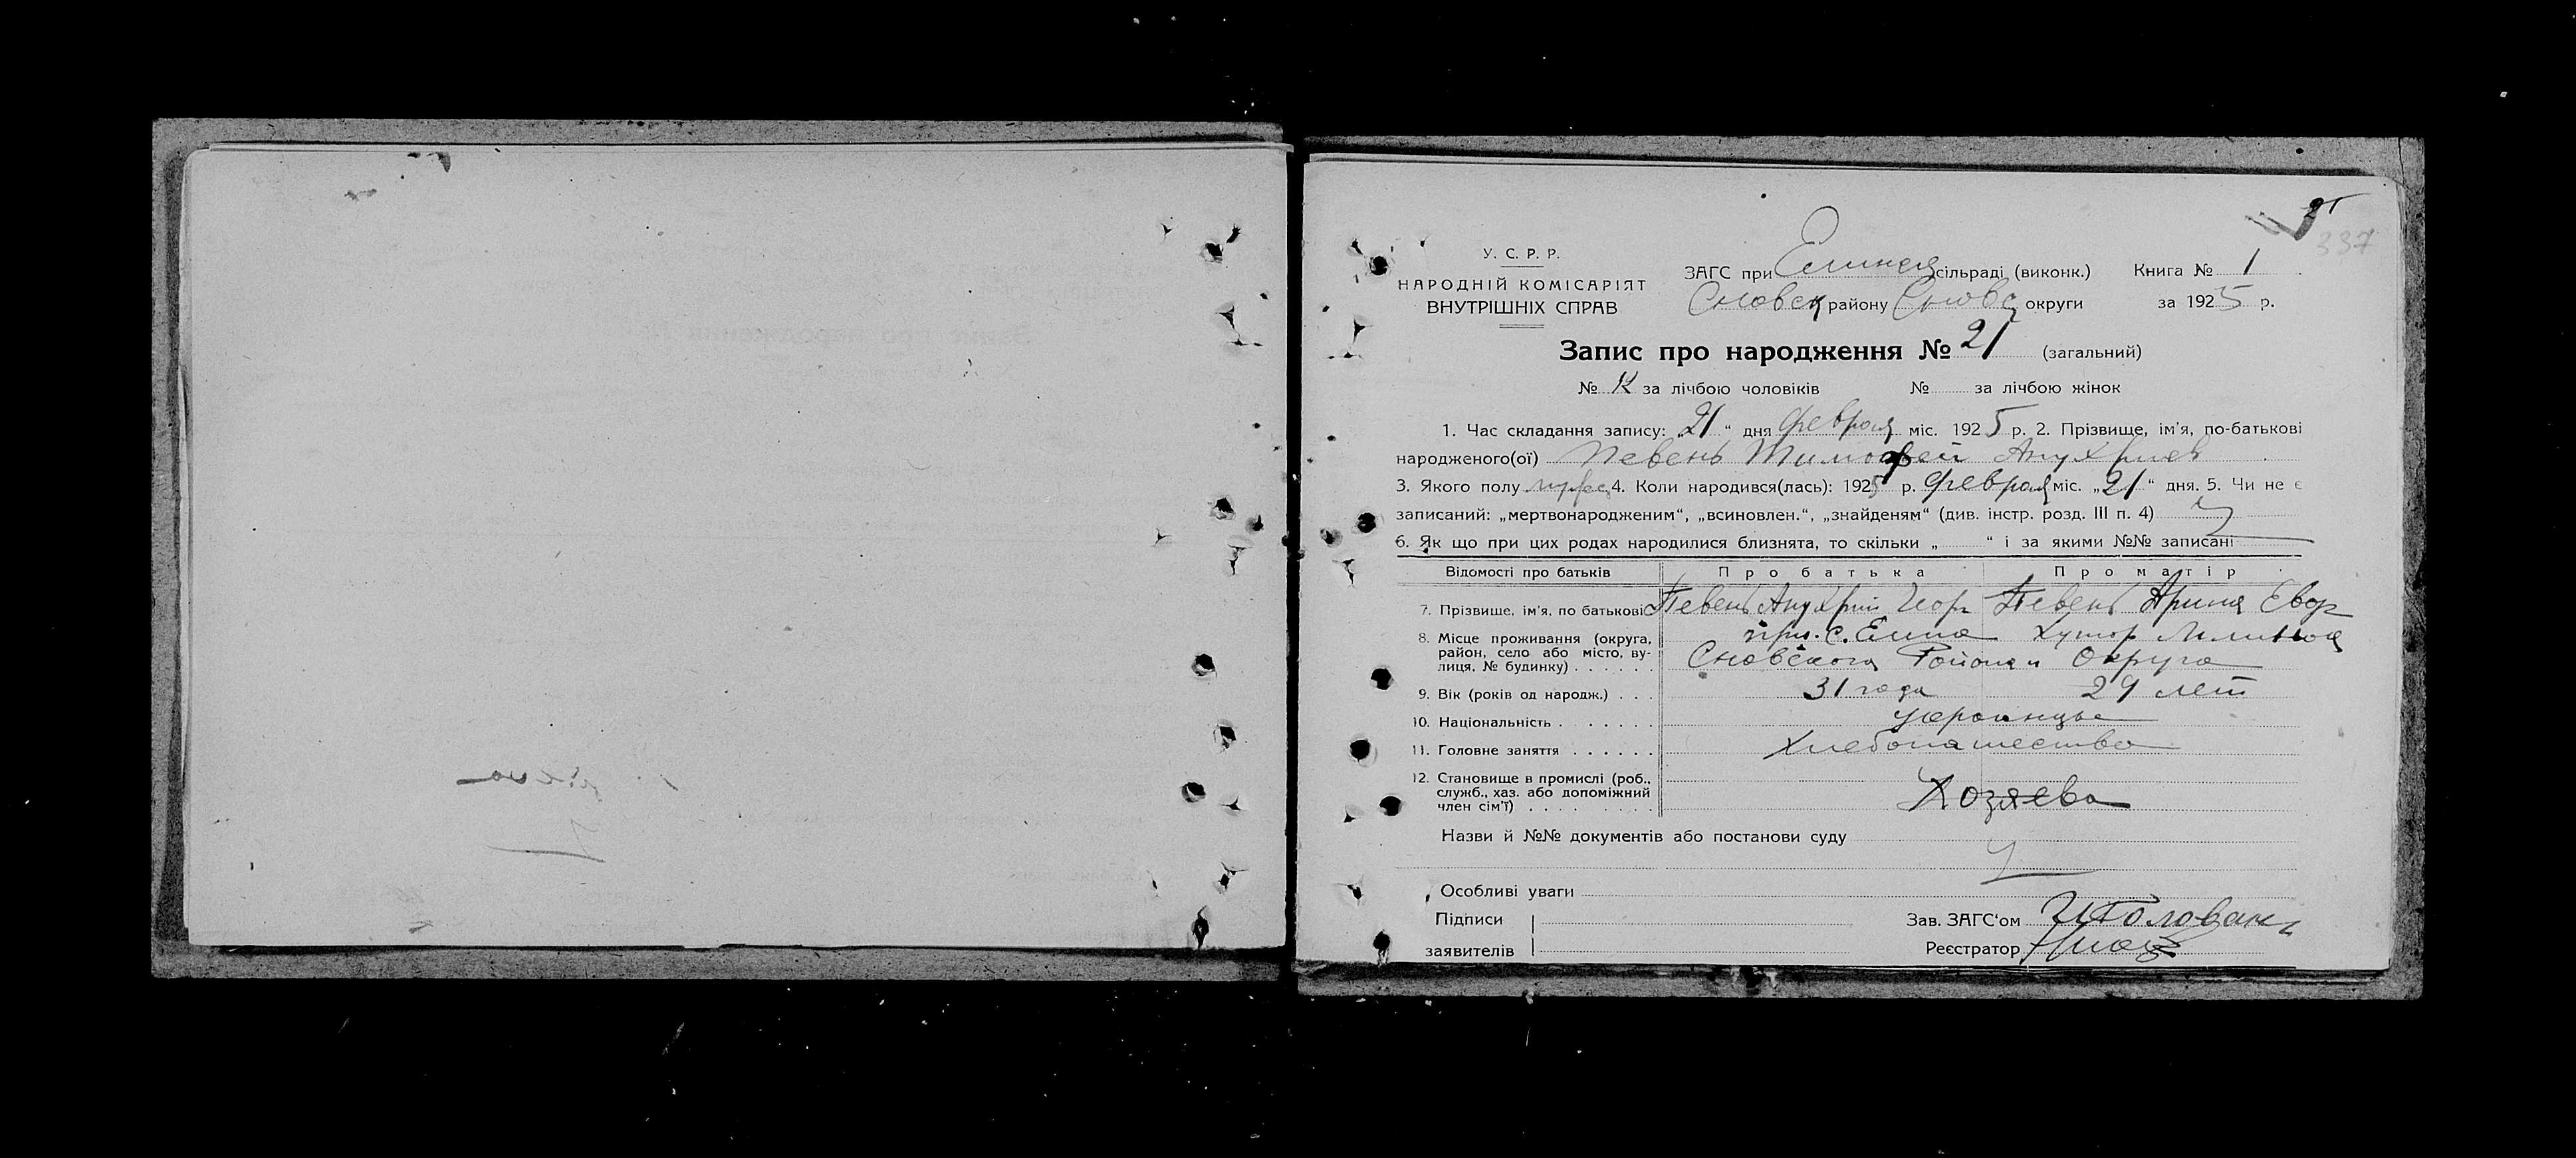 337
У. С. Р. Р.
НАРОДНІЙ КОМІСАРІЯТ
ВНУТРІШНІХ СПРАВ
ЗАГС при сільраді (виконк.) Книга № 1
Сновск району Сновс округи за 1925 р.
Запис про народження № 21 (загальний)
№ за лічбою чоловіків № за лічбою жінок
1. Час складання запису: „21“ дня февраля міс. 1925 р. 2. Прізвище, ім'я, по-батькові
народженого(ої) Певень Тимофей Анухриев
3. Якого полу 4. Коли народився(лась): 1925 р. февраля міс. „21“ дня. 5. Чи не є
записаний: „мертвонародженим“, „всиновлен.“, „знайденям“ (див. інстр. розд. III п. 4)
6. Як що при цих родах народилися близнята, то скільки „ “ і за якими №№ записані
Відомості про батьків Про батька Про матір
7. Прізвище, ім'я, по батькові Певень Анухрий Певень Арина
8. Місце проживання (округа, район, село або місто, вулиця, № будинку) с. Елина Хутор
Сновского Района и Округа
9. Вік (років од народж.) 31 года 29 лет
10. Національність украинцы
11. Головне заняття Хлебопашество
12. Становище в промислі (роб., служб., хаз. або допоміжний член сім'ї) Хозяева
Назви й №№ документів або постанови суду
Особливі уваги
Підписи Зав. ЗАГС'ом
заявителів Реєстратор